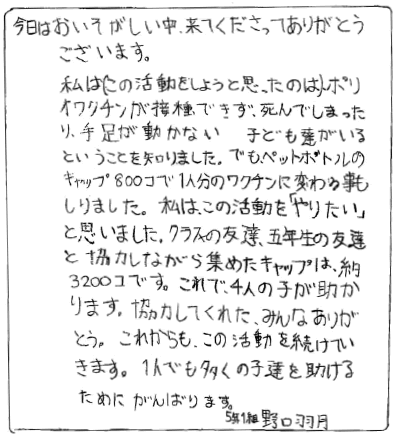 今日はおいそがしい中、来てくださってありがとう
ございます。
私は(この活動をしようと思ったのは)、ポリ
オワクチンが接種できず、死んでしまった
り、手足が動かない 子ども達がいる
ということを知りました。でもペットボトルの
キャップ800コで1人分のワクチンに変わる事も
しりました。私は、この活動を「やりたい」
と思いました。クラスの友達、五年生の友達
と協力しながら集めたキャップは、約
3200コです。これで、4人の子が助か
ります。協力してくれた、みんなありが
とう。これからも、この活動を続けてい
きます。1人でも多くの子達を助ける
ためにがんばります。
5年1組 野口羽月